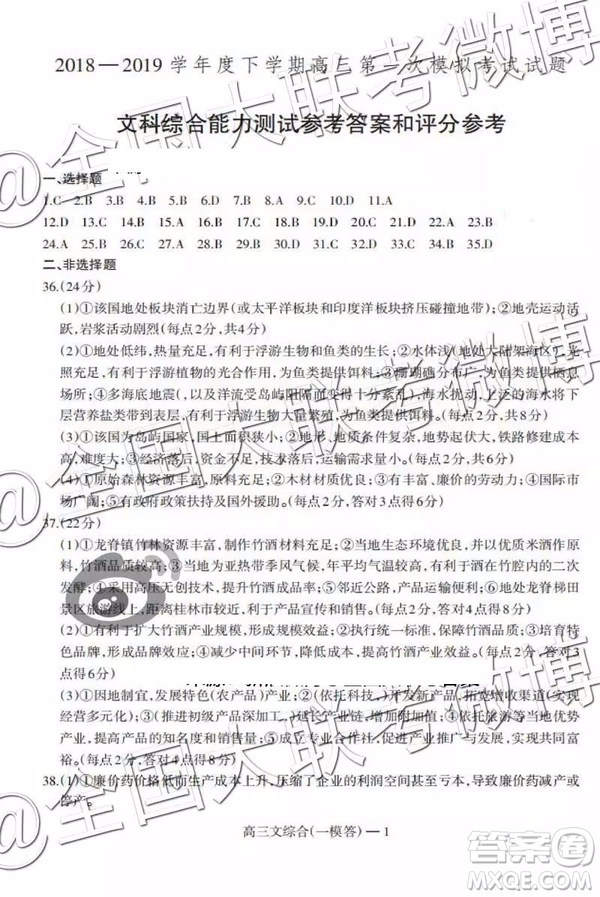 2018—2019学年度下学期高三第一次模拟考试试题
文科综合能力测试参考答案和评分参考
一、选择题
1.C 2.B 3.B 4.D 5.B 6.D 7.B 8.A 9.C 10.D 11.A
12.D 13.C 14.B 15.C 16.C 17.B 18.C 19.C 20.D 21.A 22.A 23.B
24.A 25.B 26.D 27.D 28.A 29.A 30.C 31.B 32.C 33.B 34.B 35.D
二、非选择题
36.(24分)
(1)①该国地处板块消亡边界(或太平洋板块和印度洋板块挤压碰撞地带);②地壳运动活
跃,岩浆活动剧烈(每点2分,共4分)
(2)①地处低纬,热量充足,有利于浮游生物和鱼类的生长;②水体浅(地处大陆架海区),光
照充足,有利于浮游植物的光合作用,为鱼类提供饵料;③珊瑚礁分布广,为鱼类提供饵料;
④多海底地震(,以及洋流受岛屿阻隔而变得十分紊乱),海水扰动,上泛的海水将下
层营养盐类带到表层,有利于浮游生物大量繁殖,为鱼类提供饵料(每点2分,共8分)
(3)①该国为岛屿国家,国土面积狭小;②地形、地质条件复杂,地势起伏大,铁路修建成本
高,难度大;③经济落后,资金不足,技术落后,运输需求量小。(每点2分,共6分)
(4)①原始森林资源丰富,原料充足;②木材材质优良;③有丰富、廉价的劳动力;④国际市
场广阔;⑤有政府政策扶持及国外援助。(每点2分,答对三点得6分)
37.(22分)
(1)①龙脊镇竹林资源丰富,制作竹酒材料充足;②当地生态环境优良,并以优质米酒作原
料,竹酒品质较高;③当地为亚热带季风气候,年平均气温较高,有利于竹酒在竹腔内的二次
发酵;④采用高压无创技术,提升竹酒品质;⑤邻近公路,产品运输便利;⑥地处龙脊梯田
景区旅游线上,距离桂林市较近,利于产品宣传和销售。(每点2分,答对4点得8分)
(2)①有利于扩大竹酒产业规模,形成规模效益;②统一质量标准,保障竹酒品质;③培育特
色品牌,提高市场竞争力;④降低生产成本,提高经济效益。(每点2分,答对3
点得6分)
(3)①因地制宜,发展特色(农产品)产业;②(依托科技),开发新产品,拓宽增收渠道(实现
经营多元化);③(推进初级产品深加工,)延长产业链,增加附加值;④依托旅游等当地优势
产业,提高产品的知名度和销售量;⑤成立专业合作社,促进产业推广与发展,实现共同富
裕。(每点2分,答对4点得8分)
38.(1)①廉价药价格低而生产成本上升,压缩了企业的利润空间甚至亏本,导致廉价药减产或
停产。
高三文综合(一模答)—1
@全国大联考微博
@全国大联考微博
@全国大联考微博
答案圈
MXQE.COM